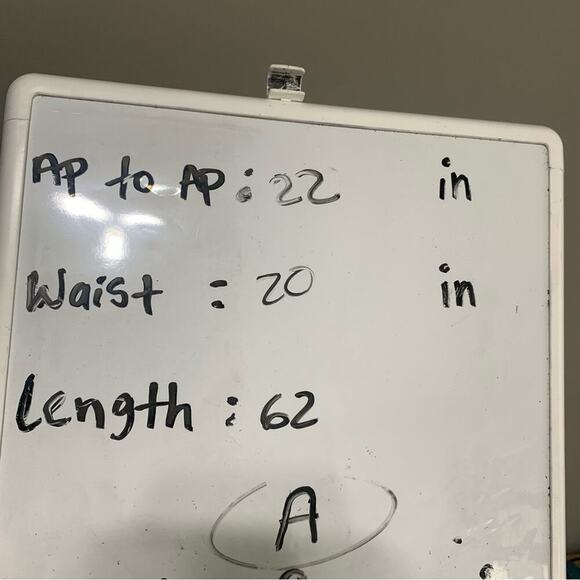 AP to AP : 22 in
Waist : 20 in
Length : 62
A